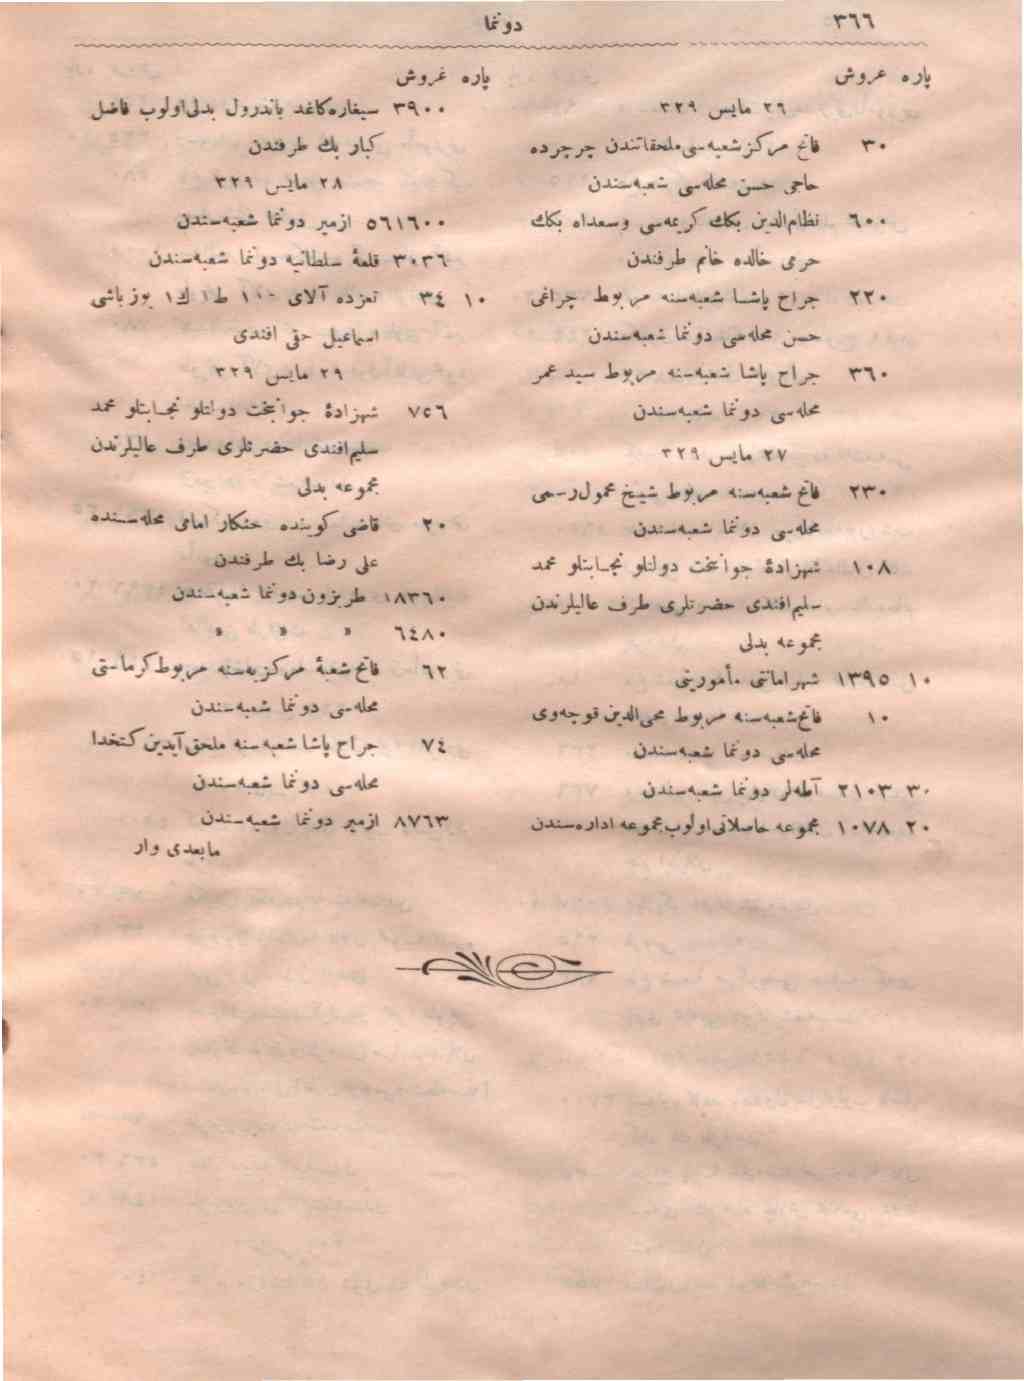 ٣٦٦
دونما
پاره غروش
٢٦ مایس ٣٢٩
٣٠ فاتح مركز شعبه‌سی ملحقاتندن چرچرده
حاجی حسن محله‌سی شعبه‌سندن
٦٠٠ نظام‌الدین بكك كریمه‌سی وسعداه بكك
حرمی خالده خانم طرفندن
٢٢٠ جراح پاشا شعبه‌سنه مربوط چراغی
حسن محله‌سی دونما شعبه‌سندن
٣٦٠ جراح پاشا شعبه‌سنه مربوط سید عمر
محله‌سی دونما شعبه‌سندن
٢٧ مایس ٣٢٩
٢٣٠ فاتح شعبه‌سنه مربوط شیخ محمول رسمی
محله‌سی دونما شعبه‌سندن
١٠٨ شهزادهٔ جوانبخت دولتلو نجابتلو محمد
سلیم افندی حضرتلری طرف عالیلرندن
مجموعه بدلی
١٠ ١٣٩٥ شهر امانتی مأمورینی
١٠ فاتح شعبه‌سنه مربوط محی‌الدین قوجه‌وی
محله‌سی دونما شعبه‌سندن
٣٠ ٢١٠٣ آطه‌لر دونما شعبه‌سندن
٢٠ ١٠٧٨ مجموعه حاصلاتی اولوب مجموعه اداره‌سندن
پاره غروش
٣٩٠٠ سیغاره كاغد باندرول بدلی اولوب فاضل
كبار بك طرفندن
٢٨ مایس ٣٢٩
٥٦١٦٠٠ ازمیر دونما شعبه‌سندن
٣٠٣٦ قلعهٔ سلطانیه دونما شعبه‌سندن
١٠ ٣٤ تعزده آلای ١٠٠ ط ١ ك ١ یوزباشی
اسماعیل حقی افندی
٢٩ مایس ٣٢٩
٧٥٦ شهزادهٔ جوانبخت دولتلو نجابتلو محمد
سلیم افندی حضرتلری طرف عالیلرندن
مجموعه بدلی
٢٠ قاضی كوینده خنكار امامی محله‌سنده
علی رضا بك طرفندن
١٨٣٦٠ طربزون دونما شعبه‌سندن
٦٤٨٠ » » »
٦٢ فاتح شعبهٔ مركزیه‌سنه مربوط كرماستی
محله‌سی دونما شعبه‌سندن
٧٤ جراح پاشا شعبه‌سنه ملحق آیدین كتخدا
محله‌سی دونما شعبه‌سندن
٨٧٦٣ ازمیر دونما شعبه‌سندن
مابعدی وار